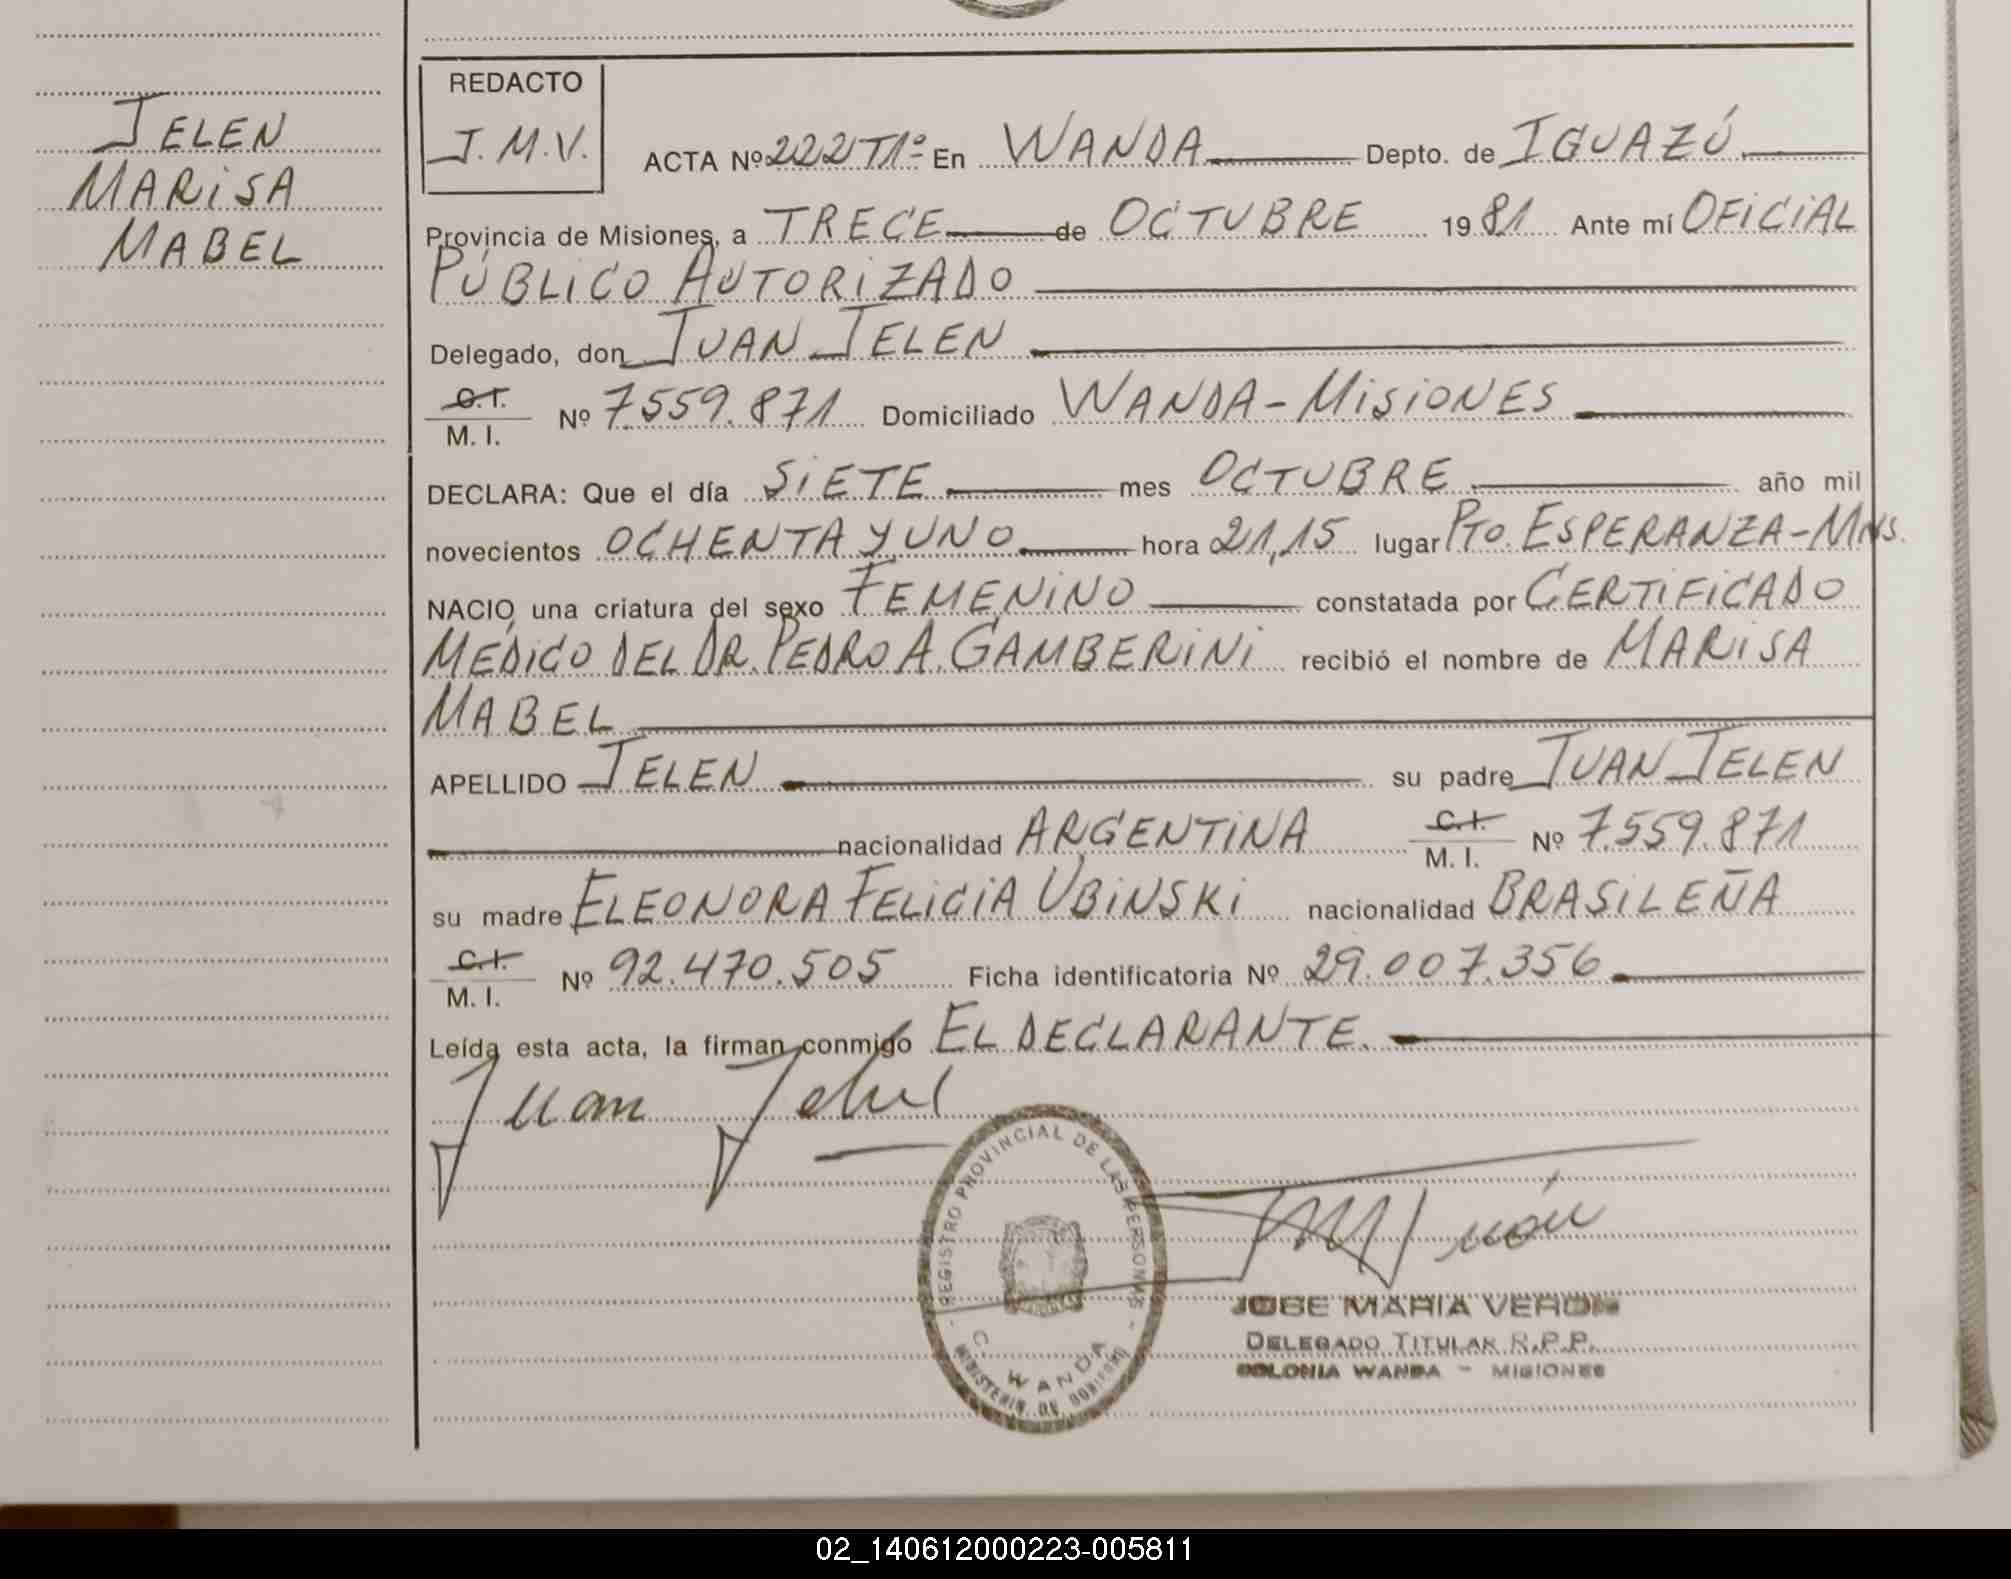 JELEN
MARISA
MABEL
REDACTO
J.M.V.
ACTA Nº 222 T1º En WANDA Depto. de IGUAZÚ
Provincia de Misiones, a TRECE de OCTUBRE 1981 Ante mí OFICIAL
PÚBLICO AUTORIZADO
Delegado, don JUAN JELEN
C.I.
M. I. Nº 7.559.871 Domiciliado WANDA-MISIONES
DECLARA: Que el día SIETE mes OCTUBRE año mil
novecientos OCHENTA Y UNO hora 21,15 lugar PTO. ESPERANZA-MNS.
NACIO una criatura del sexo FEMENINO constatada por CERTIFICADO
MÉDICO DEL DR. PEDRO A. GAMBERINI recibió el nombre de MARISA
MABEL
APELLIDO JELEN su padre JUAN JELEN
nacionalidad ARGENTINA C.I. M. I. Nº 7.559.871
su madre ELEONORA FELICIA UBINSKI nacionalidad BRASILEÑA
C.I.
M. I. Nº 92.470.505 Ficha identificatoria Nº 29.007.356
Leída esta acta, la firman conmigo EL DECLARANTE.
Juan Jelen
REGISTRO PROVINCIAL DE LAS PERSONAS
C. WANDA
MINISTERIO DE GOBIERNO
JOSE MARIA VERON
DELEGADO TITULAR R.P.P.
COLONIA WANDA - MISIONES
02_140612000223-005811